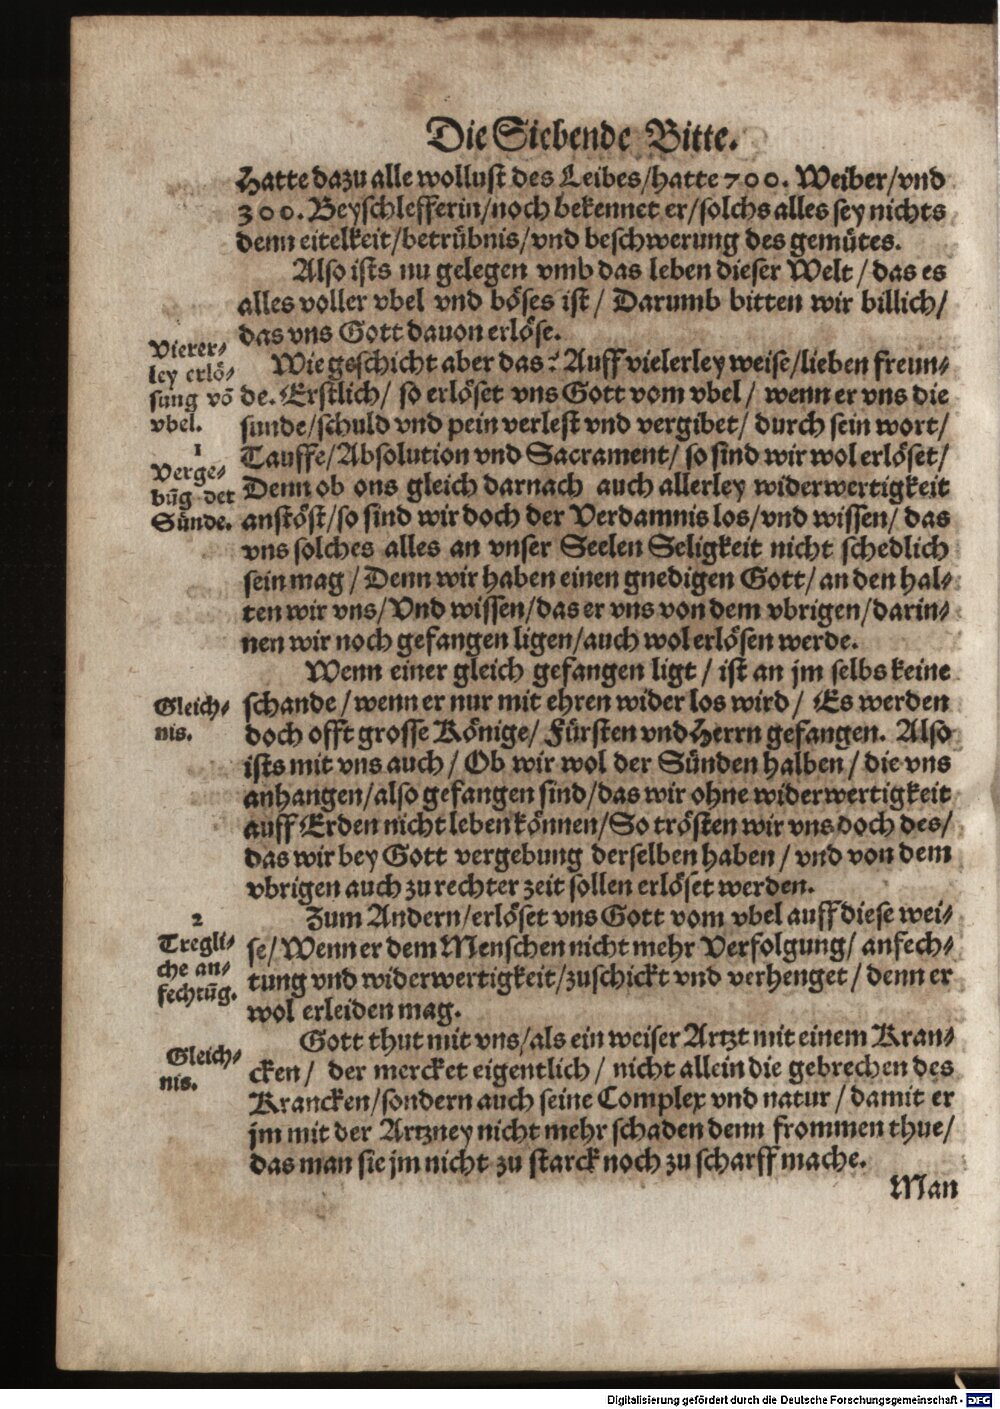 Die Siebende Bitte.
Hatte dazu alle wollust des Leibes/hatte 700. Weiber/vnd
300. Beyschlefferin/noch bekennet er/solchs alles sey nichts
denn eitelkeit/betrübnis/vnd beschwerung des gemütes.
Also ists nu gelegen vmb das leben dieser Welt/das es
alles voller vbel vnd böses ist/ Darumb bitten wir billich/
das vns Gott dauon erlöse.
Vierer⸗
ley erlö⸗
sung võ
vbel.
Wie geschicht aber das? Auff vielerley weise/lieben freun⸗
de. Erstlich/ so erlöset vns Gott vom vbel/ wenn er vns die
sunde/schuld vnd pein verlest vnd vergibet/ durch sein wort/
1
Verge⸗
bũg der
Sünde.
Tauffe/Absolution vnd Sacrament/ so sind wir wol erlöset/
Denn ob ons gleich darnach auch allerley widerwertigkeit
anstöst/so sind wir doch der Verdamnis los/vnd wissen/ das
vns solches alles an vnser Seelen Seligkeit nicht schedlich
sein mag/ Denn wir haben einen gnedigen Gott/an den hal⸗
ten wir vns/Vnd wissen/das er vns von dem vbrigen/darin⸗
nen wir noch gefangen ligen/auch wol erlösen werde.
Wenn einer gleich gefangen ligt/ ist an jm selbs keine
Gleich⸗
nis.
schande/wenn er nur mit ehren wider los wird/ Es werden
doch offt grosse Könige/ Fürsten vnd Herrn gefangen. Also
ists mit vns auch/ Ob wir wol der Sünden halben/ die vns
anhangen/also gefangen sind/das wir ohne widerwertigkeit
auff Erden nicht leben können/So trösten wir vns doch des/
das wir bey Gott vergebung derselben haben/ vnd von dem
vbrigen auch zu rechter zeit sollen erlöset werden.
2
Tregli⸗
che an⸗
fechtũg.
Zum Andern/erlöset vns Gott vom vbel auff diese wei⸗
se/ Wenn er dem Menschen nicht mehr Verfolgung/ anfech⸗
tung vnd widerwertigkeit/zuschickt vnd verhenget/ denn er
wol erleiden mag.
Gleich⸗
nis.
Gott thut mit vns/als ein weiser Artzt mit einem Kran⸗
cken/ der mercket eigentlich/ nicht allein die gebrechen des
Krancken/sondern auch seine Complex vnd natur/ damit er
jm mit der Artzney nicht mehr schaden denn frommen thue/
das man sie jm nicht zu starck noch zu scharff mache.
Man
Digitalisierung gefördert durch die Deutsche Forschungsgemeinschaft - DFG